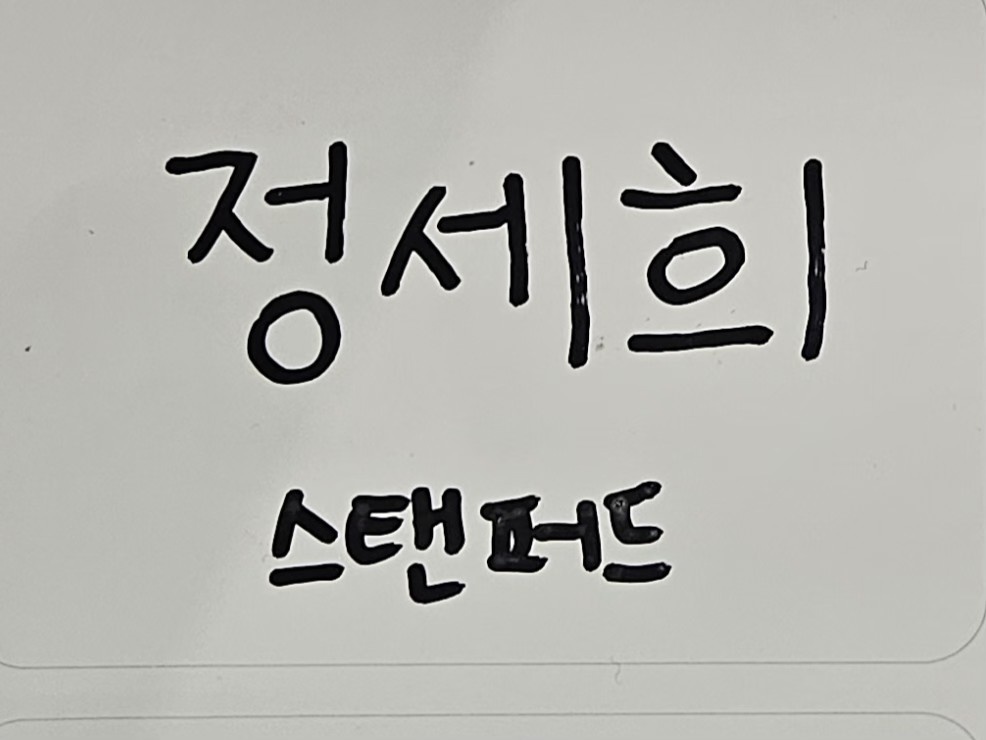 정세희
스탠퍼드